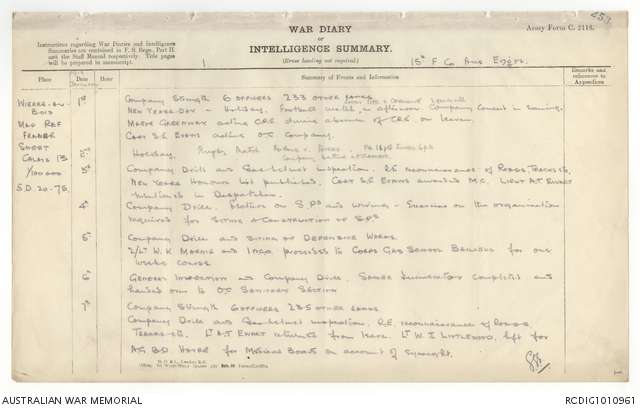 WAR DIARY
or
INTELLIGENCE SUMMARY.
(Erase heading not required.)
Army Form C. 2118.
Instructions regarding War Diaries and Intelligence
Summaries are contained in F. S. Regs., Part II.
and the Staff Manual respectively. Title pages
will be prepared in manuscript.
1
15th F Co Aus Engrs.
Place
Date
Hour
Summary of Events and Information
Remarks and
references to
Appendices
1st
Company Strength 6 officers 233 other ranks
New Years Day - Holiday. Football match in afternoon Company Concert in evening.
Major Greenway acting CRE during absence of CRE on leave.
Capt S.E. Evans acting OC Company.
Bois
Map Ref
Sheet
Calais 13
1/100000
5.D. 20-75
Holiday. Rugby Match
Company Drill and Box-helmet inspection. RE reconnaissance of Roads, Tracks etc.
New Years Honours list published. Capt S.E Evans awarded M.C. Lieut A.T Ewart
mentioned in Despatches.
4th
Company Drill. Lecture on S.Ps and wiring - Exercise on the organization
required for siting & construction of SPs
5th
Company Drill and siting of Defensive Works.
2/Lt W.K and proceeded to Corps Gas School for one
weeks course.
6th
General Inspection and Company Drill. completed and
handed over to OC Sanitary Section
7th
Company Strength 6 officers 235 other ranks
Company Drill and Box-helmet inspection. R.E. reconnaissance of Roads,
Tracks etc. Lt A.T Ewart returned from leave. Lt W. I left for
A.G.B.D. Havre for Medical Board on account of eyesight.
AUSTRALIAN WAR MEMORIAL
RCDIG1010961